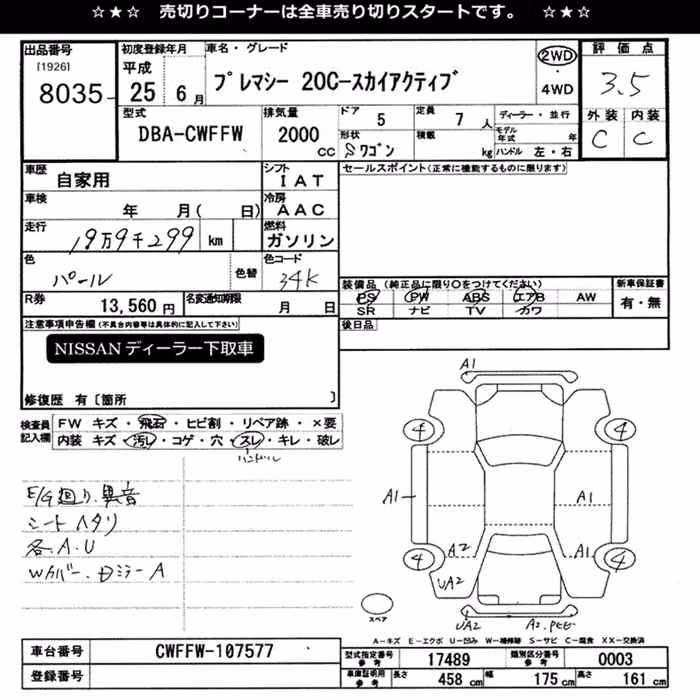 ☆★☆ 売切りコーナーは全車売り切りスタートです。 ☆★☆
出品番号 初度登録年月 車名・グレード 評価点
[1926] 平成 2WD
8035 25 6月 プレマシー 20C-スカイアクティブ 4WD 3.5
型式 排気量 ドア 5 定員 7人 ディーラー・並行 外装 内装
DBA-CWFFW 2000 CC 形状 Sワゴン 積載 kg モデル年式 年 ハンドル 左・右 C C
車歴 自家用 シフト IAT セールスポイント(正常に機能するものに限ります)
車検 年 月( 日) 冷房 AAC
走行 19万9千299 km 燃料 ガソリン
色 パール 色替 色コード 34K
装備品(純正品に限り○をつけてください) 新車保証書
PS PW ABS エアB AW 有・無
SR ナビ TV カワ
R券 13,560円 名変通知期限 月 日
後日品
注意事項申告欄(不具合内容等は具体的に記入して下さい)
NISSANディーラー下取車
修復歴 有〔箇所 〕
検査員記入欄 FW キズ・飛石・ヒビ割・リペア跡・×要
内装 キズ・汚レ・コゲ・穴・スレ・キレ・破レ
ハンドル
E/G廻り、異音
シートヘタリ
各、A.U
Wカバー、ミラーA
A1
4 4
A1 A1
A2 A1
4 4
UA2
スペア UA2 A2.
A-キズ E-エクボ U-凹み W-補修跡 S-サビ C-腐食 XX-交換済
車台番号 CWFFW-107577 型式指定番号 参考 17489 類別区分番号 参考 0003
登録番号 車庫証明用 参考 長さ 458 cm 幅 175 cm 高さ 161 cm